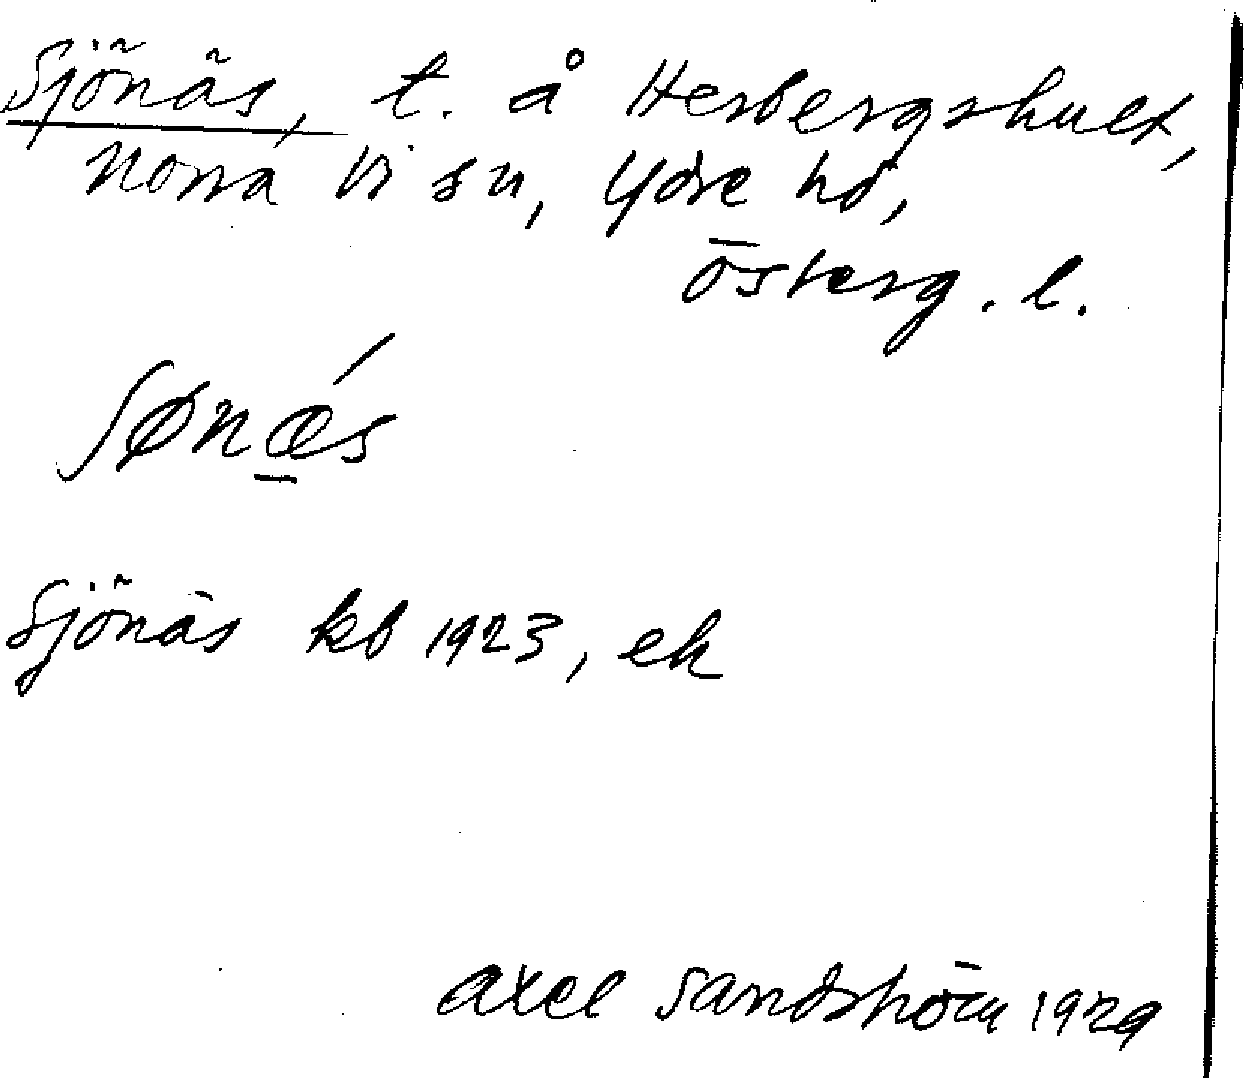 Sjönäs, t. å Herbergshult,
Norra Vi sn, Ydre hd,
Österg. l.
ʃønǽ̱s
Sjönäs kb 1923, ek
Axel Sandström 1929